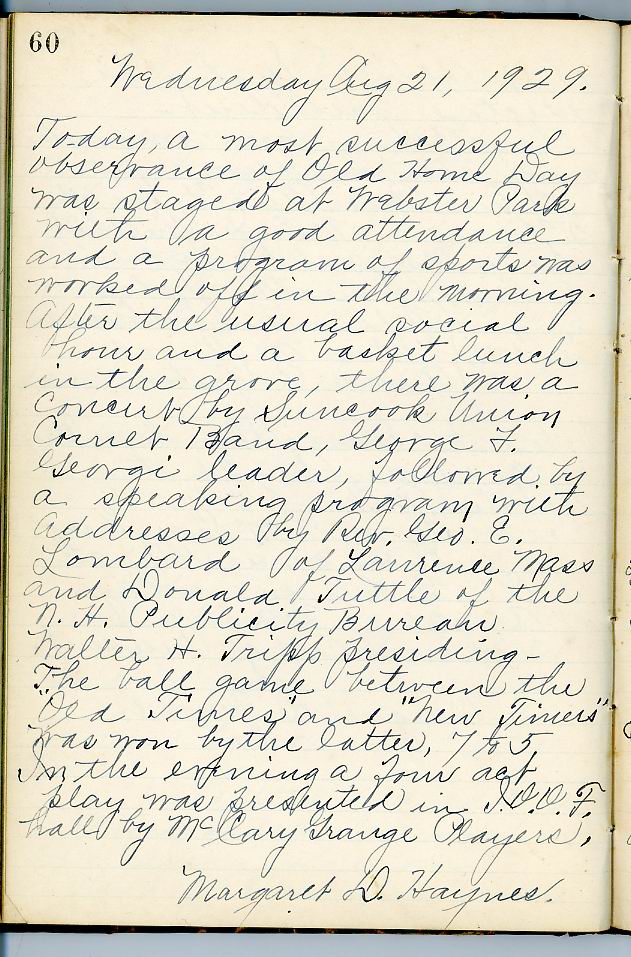 60
Wednesday Aug 21, 1929.
Today, a most successful
observance of Old Home Day
was staged at Webster Park
with a good attendance
and a program of sports was
worked off in the morning.
After the usual social
hour and a basket lunch
in the grove, there was a
concert by Suncook Union
Cornet Band, George F.
Georgi leader, followed by
a speaking program with
addresses by Rev. Geo. E.
Lombard of Lawrence Mass
and Donald Tuttle of the
N. H. Publicity Bureau
Walter H. Tripp presiding-
The ball game between the
"Old Times" and "New Timers"
was won by the latter, 7 to 5,
In the evening a four act
play was presented in I.O.O.F.
hall by McCary Grange Players.
Margaret D. Haynes.